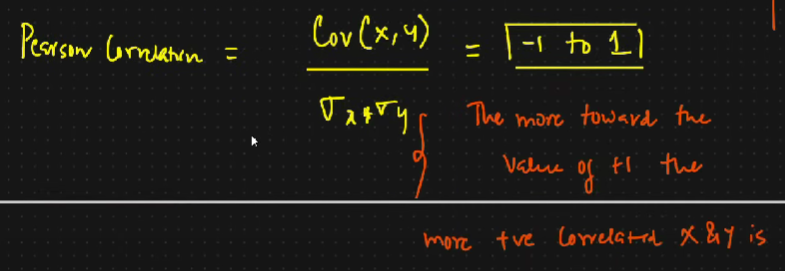 Pearson Correlation = Cov(x,y) / σx * σy = -1 to 1
The more toward the
value of +1 the
more +ve correlated X & Y is